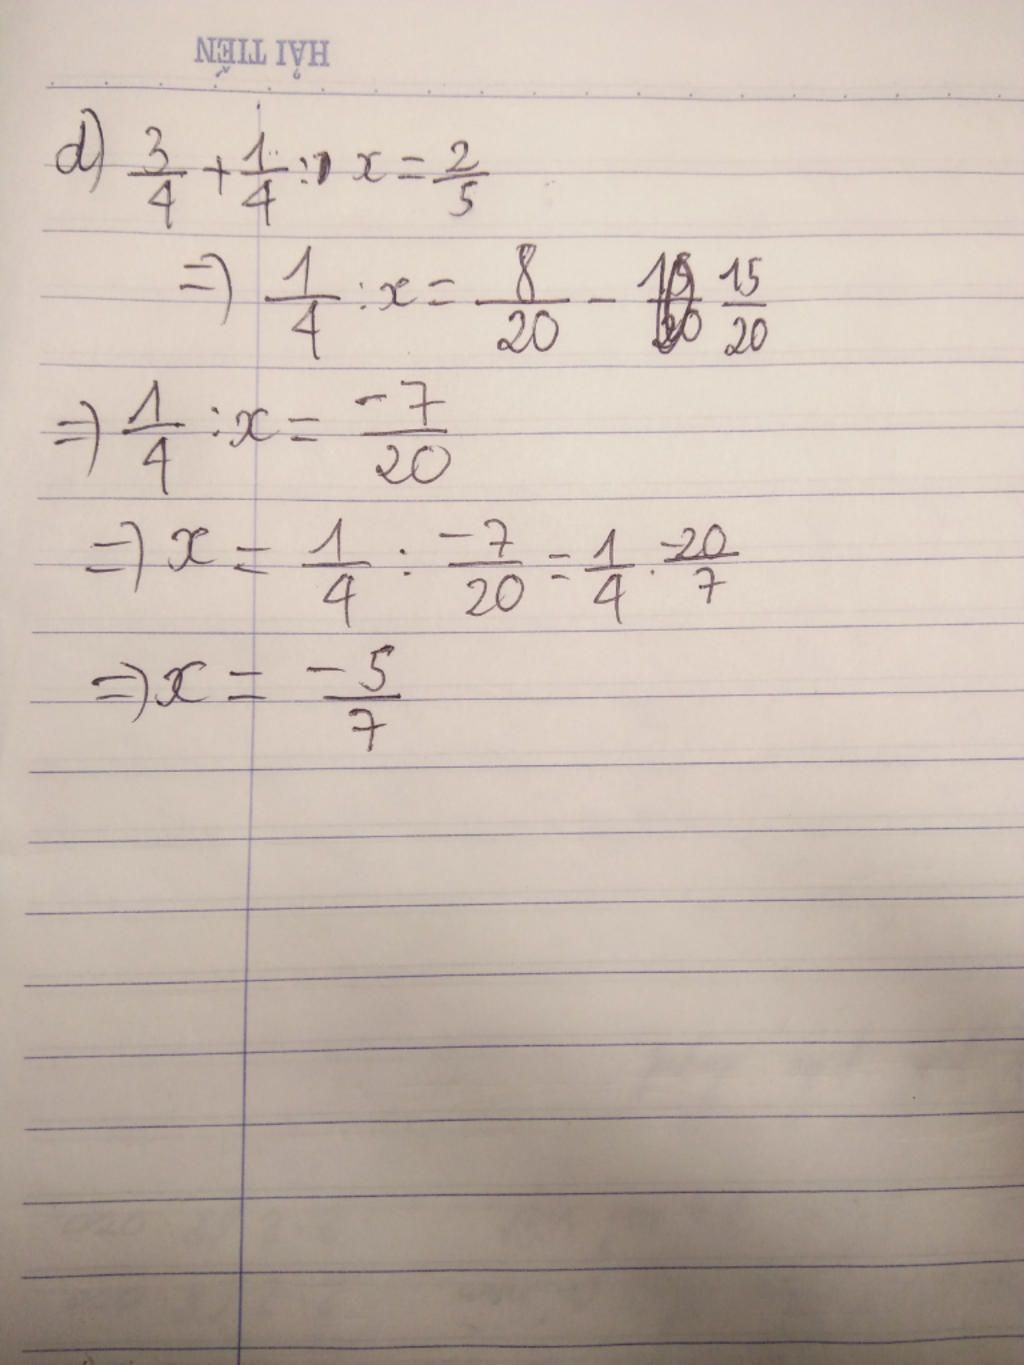 HẢI TIẾN
d) 3/4 + 1/4 : x = 2/5
=) 1/4 : x = 8/20 - 15/20
=) 1/4 : x = -7/20
=) x = 1/4 : -7/20 = 1/4 . -20/7
=) x = -5/7